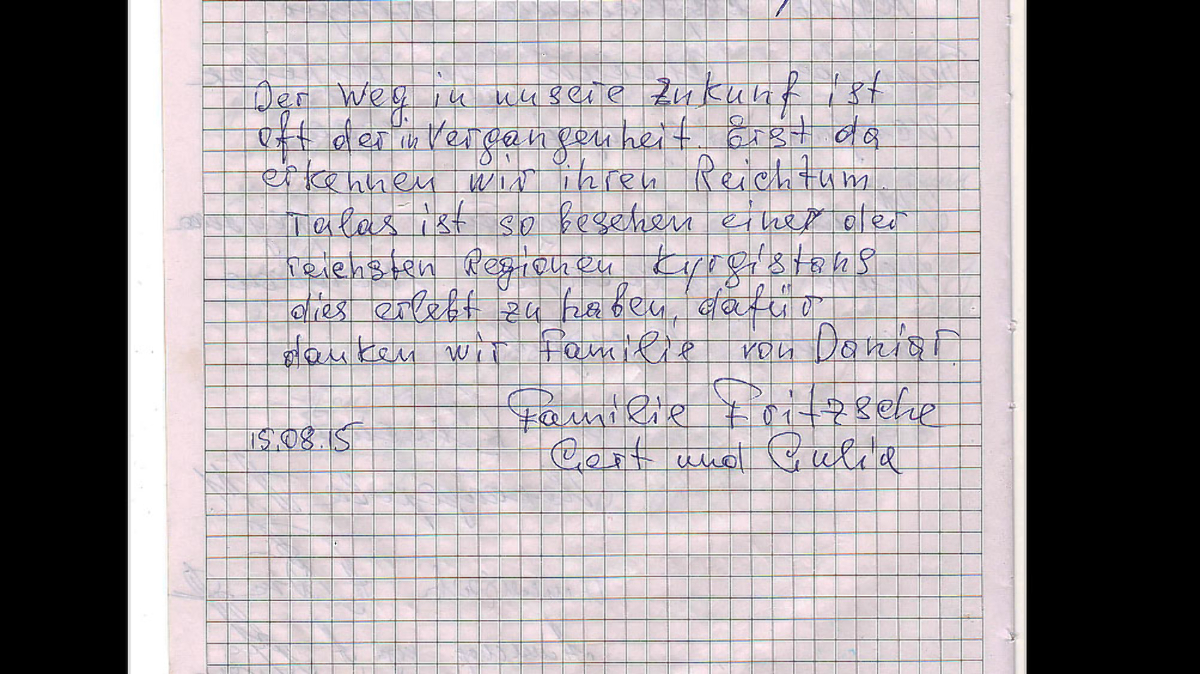 Der Weg in unsere Zukunf ist
oft der in Vergangenheit. Erst da
erkennen wir ihren Reichtum.
Talas ist so besehen einer der
reichsten Regionen Kyrgistans
dies erlebt zu haben, dafür
danken wir Familie von Daniar.
Familie Fritzsche
15.08.15
Gert und Gulia